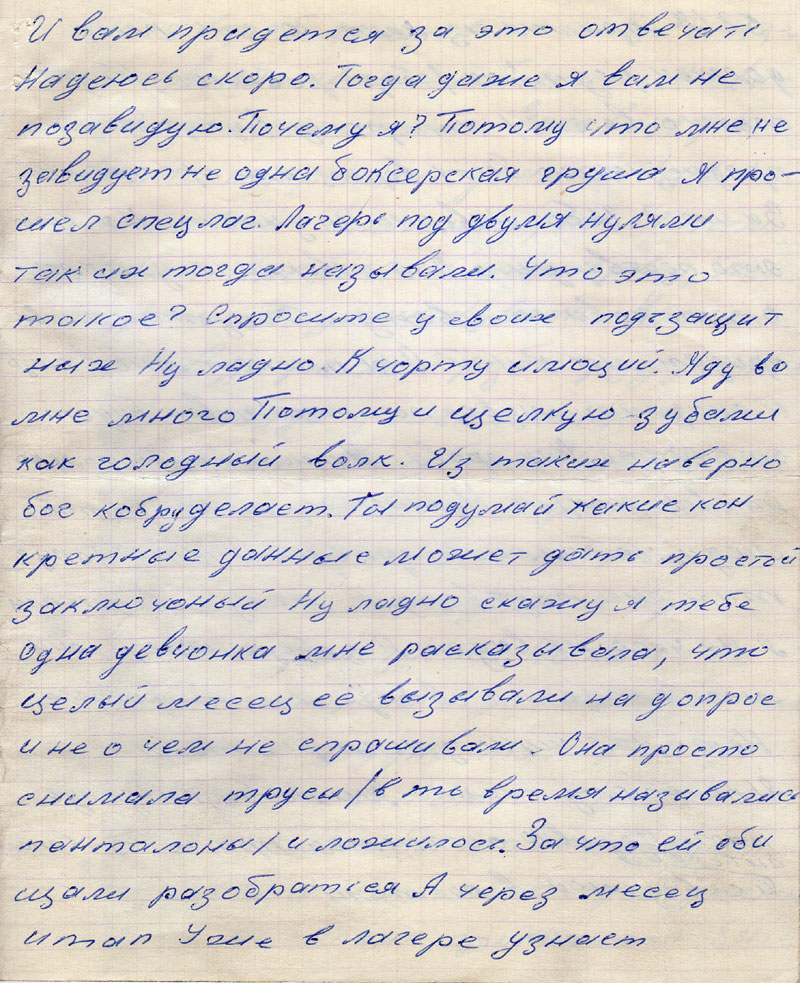 И вам придется за это отвечать
Надеюсь скоро. Тогда даже я вам не
позавидую. Почему я? Потому что мне не
завидует не одна боксерская груша Я про-
шел спецлаг. Лагерь под двумя нулями
так их тогда называли. Что это
такое? Спросите у своих подъзащит
ных Ну ладно. К чорту имоций. Яду во
мне много Потому и щелкую зубами
как голодный волк. Из таких наверно
бог кобру делает. Ты подумай какие кон
кретные данные может дать простой
заключоный Ну ладно скажу я тебе
Одна девчонка мне расказывала, что
целый месец её вызывали на допрос
и не о чем не спрашивали. Она просто
снимала трусы /в то время назывались
панталоны/ и ложилось. За что ей оби
щали разобраться А через месец
итап Уже в лагере узнает